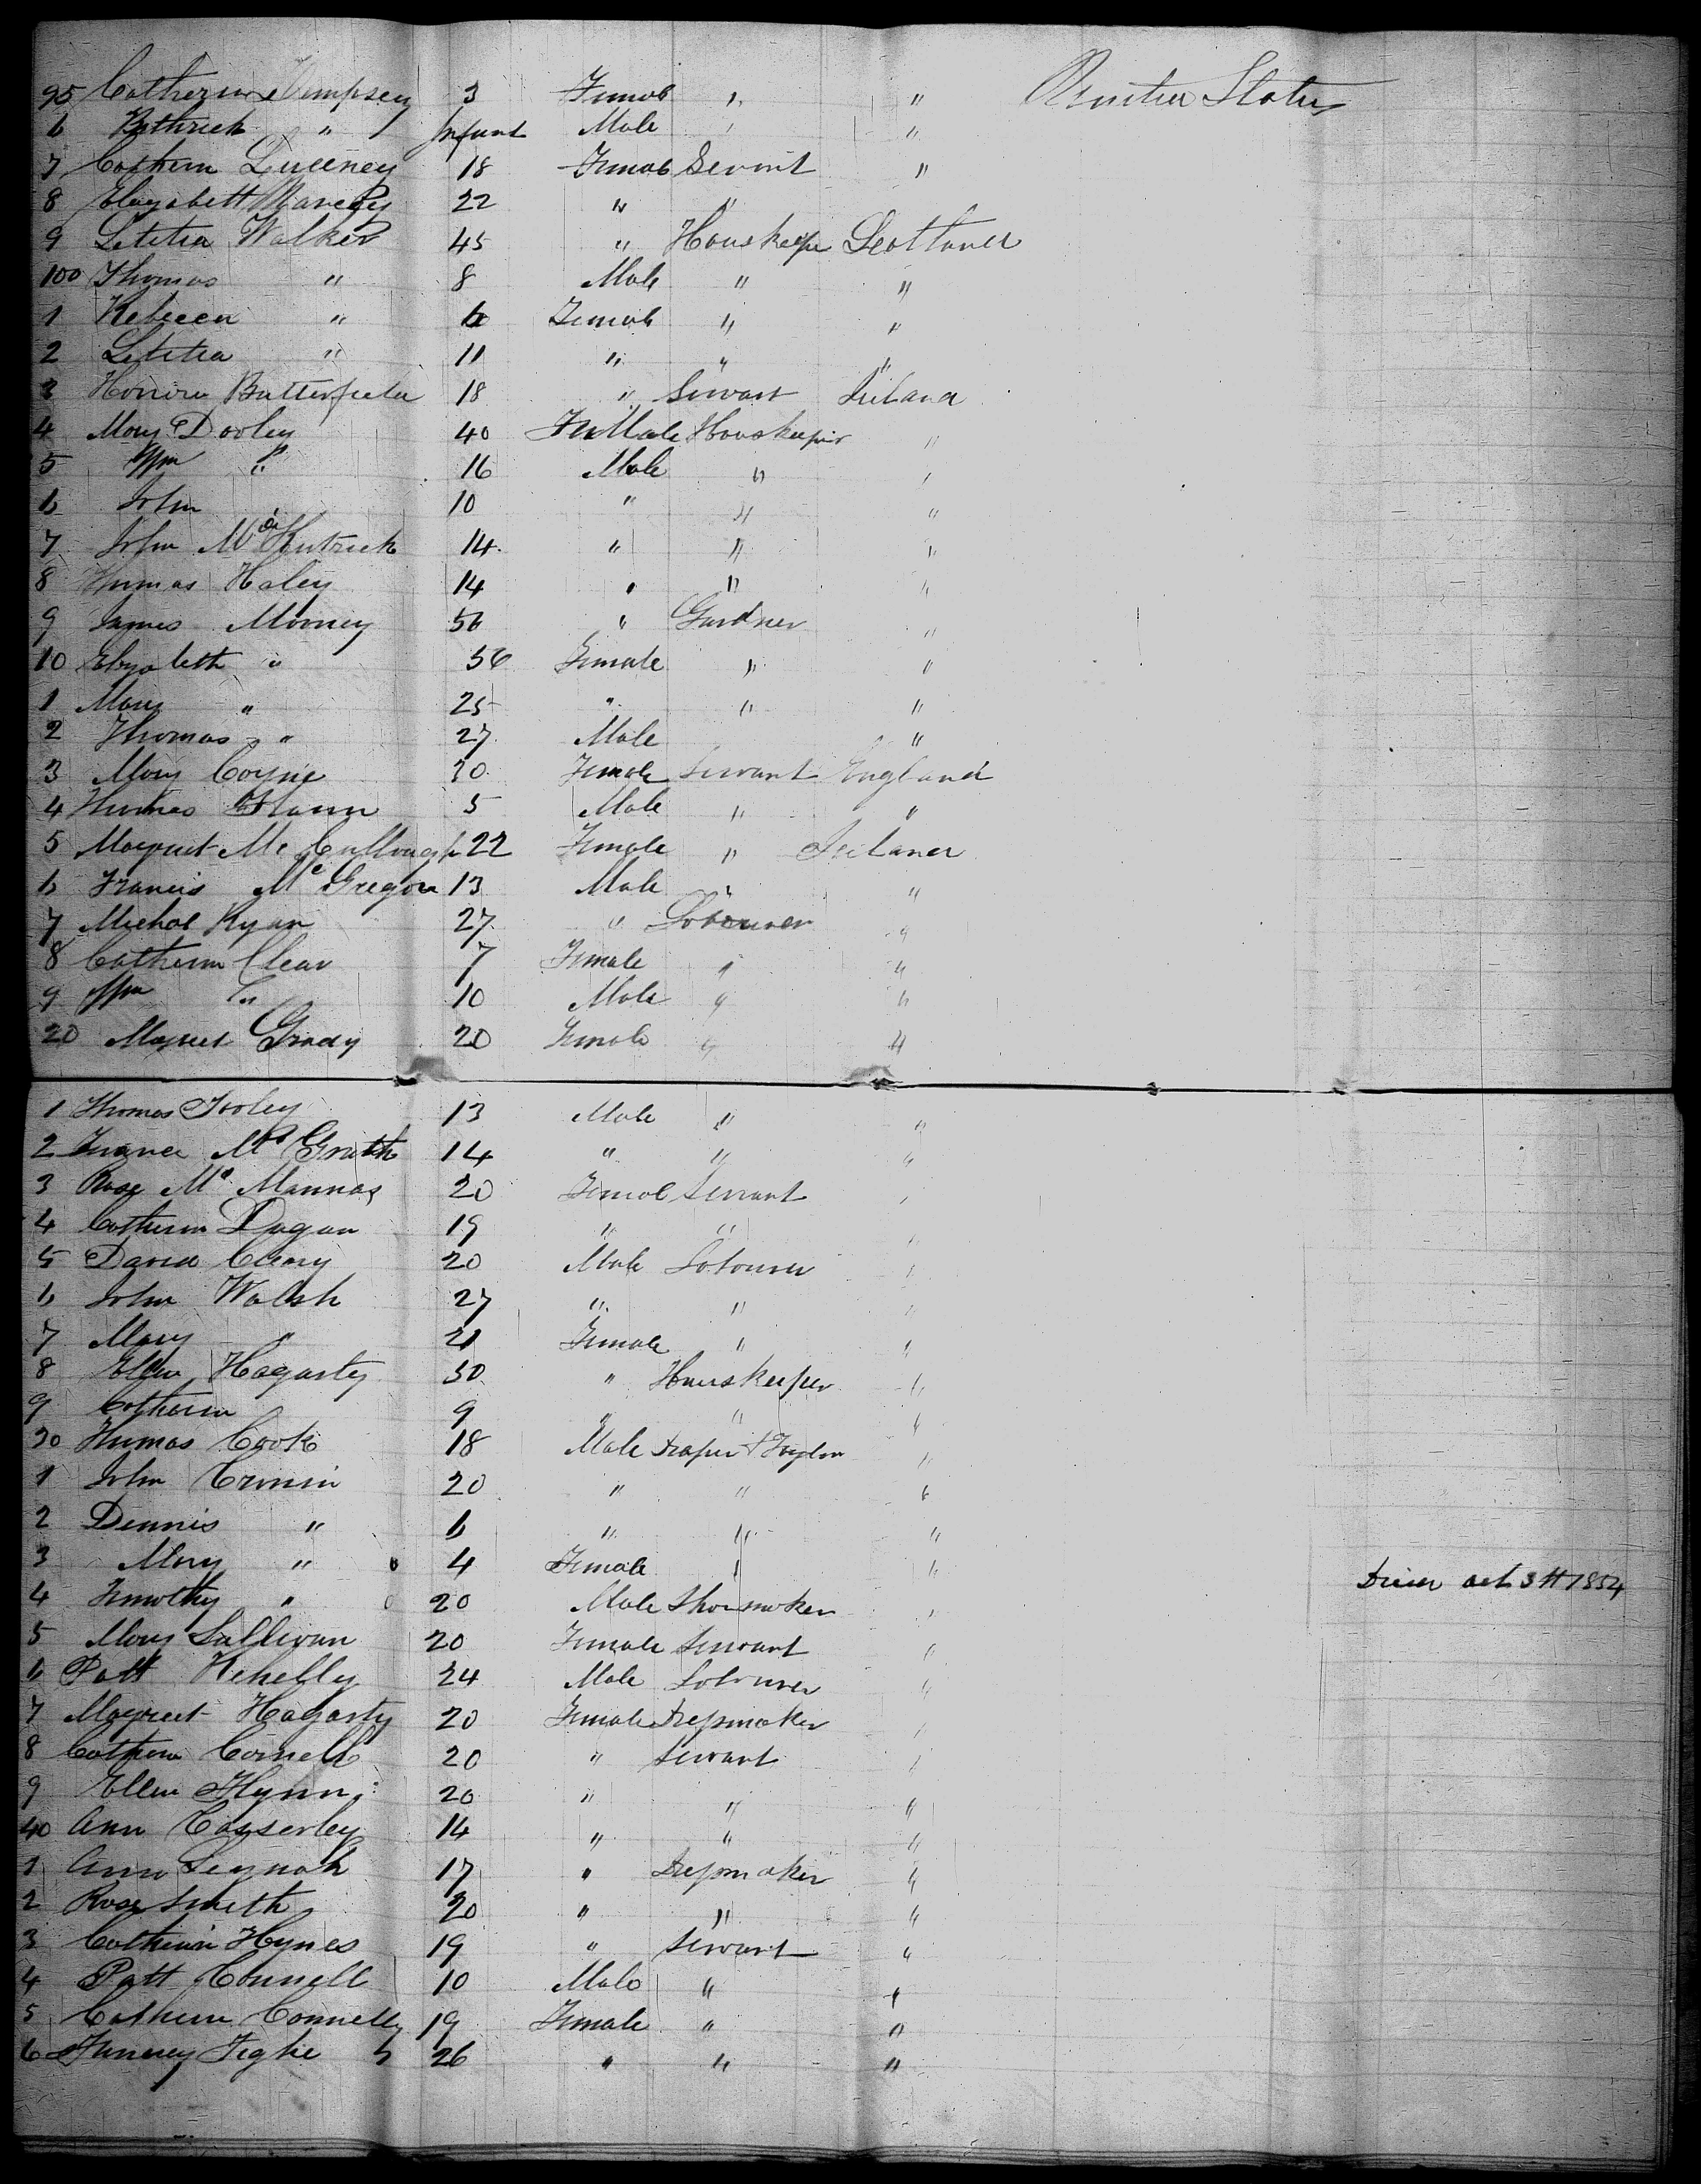 95 Catherine Dempsey 3 Female " " United States
6 Pathrick " Infant Male " "
7 Cathern Queeney 18 Female Servint "
8 Elizabett 22 " "
9 Letitia Walker 45 " Houskeeper Scotland
100 Thomas " 8 Male " "
1 Rebecca " 6 Female " "
2 Letitia " 11 " " "
3 Honora Butterfield 18 " Servant Ireland
4 Mary Dooley 40 FeMale Houskeeper "
5 Wm " 16 Male " "
6 John " 10 " " "
7 John 14 " " "
8 Thomas Haley 14 " " "
9 James Mooney 56 " Gardner "
10 Elizabeth " 56 Female " "
1 Mary " 25 " " "
2 Thomas " 27 Male "
3 Mary Coyne 30 Female Servant England
4 Thomas 5 Male " "
5 Margret Mc Cullough 22 Female " Ireland
6 Francis Mc Gregor 13 Male " "
7 Michal Ryan 27 " Labourer "
8 Cathern Clear 7 Female " "
9 Wm " 10 Male " "
20 Margret Grady 20 Female " "
1 Thomas Tooley 13 Male " "
2 Mc Grath 14 " " "
3 Rose Mc Mannas 20 Female Servant "
4 Cathern Dugan 19 " " "
5 David Cleary 20 Male Labourer "
6 John Walsh 27 " " "
7 Mary " 21 Female " "
8 Ellen Hagarty 30 " Houskeeper "
9 Cathern 9 " " "
30 Thomas Cook 18 Male Draper & Taylor "
1 John Cronin 20 " " "
2 Dennis " 6 " " "
3 Mary " 4 Female " " Died Oct 3th 1854
4 Timothy " 20 Male Shoemaker "
5 Mary Sullivan 20 Female Servant "
6 Patt Kenelly 24 Male Labourer "
7 Margreet Hagarty 20 Female Dressmaker "
8 Cathern Connell 20 " Servant "
9 Ellen Flynn 20 " " "
40 Ann Casserley 14 " " "
1 Ann 17 " Dressmaker "
2 Rose Smith 20 " " "
3 Cathern Hynes 19 " Servant "
4 Patt Connell 10 Male " "
5 Cathern Connelly 19 Female " "
6 Tighe 26 " " "